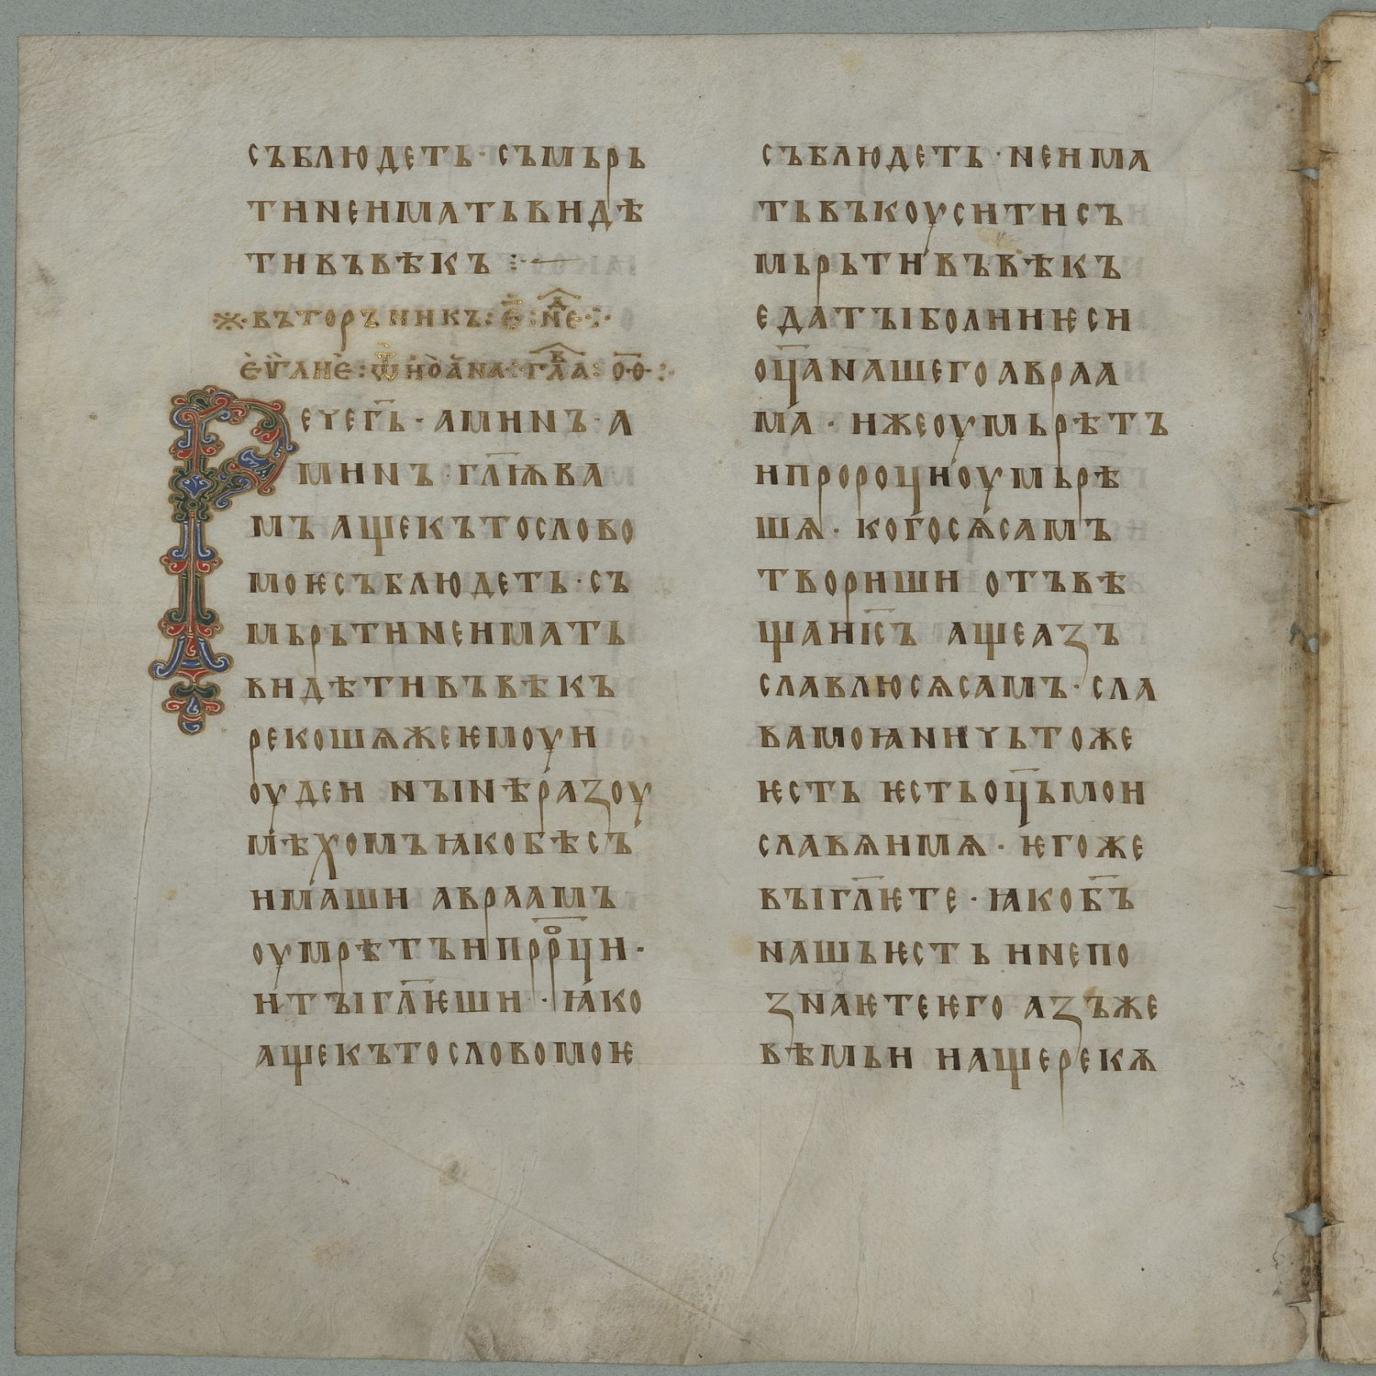 съблюдеть · съмьрь
тинеимать видѣ
тивъвѣкъ :·—
※·въторъникъ: е҃ :нд҃е·:·
еу҃глие: ѿ иоана· гла҃в: о҃·ѳ·:·
Речег҃ь · аминъ · а
минъ гл҃ѭва
мъ ащекътослово
моѥсъблюдеть · съ
мьрьтинеимать
видѣтивъвѣкъ
рекошѧжеѥмоуи
оудеи нъінѣразоу
мѣхомъꙗкобѣсъ
имаши авраамъ
оумрѣтъипрⷪ҇рци ·
итъігл҃ѥши · ꙗко
ащекътословомоѥ
съблюдеть · неима
тьвъкоуситисъ
мьрьтивъвѣкъ
едатъіболииѥси
оц҃анашегоавраа
ма · ижеоумьрѣтъ
ипророциоумьрѣ
шѧ · когосѧсамъ
твориши отъвѣ
щаиі҃съ ащеазъ
славлюсѧсамъ · сла
вамоꙗничьтоже
ѥсть ѥстьоц҃ьмои
славѧимѧ · ѥгоже
въігл҃ѥте · ꙗкоб҃ъ
нашьѥсть инепо
знаѥтеѥго азъже
вѣмьи иащерекѫ